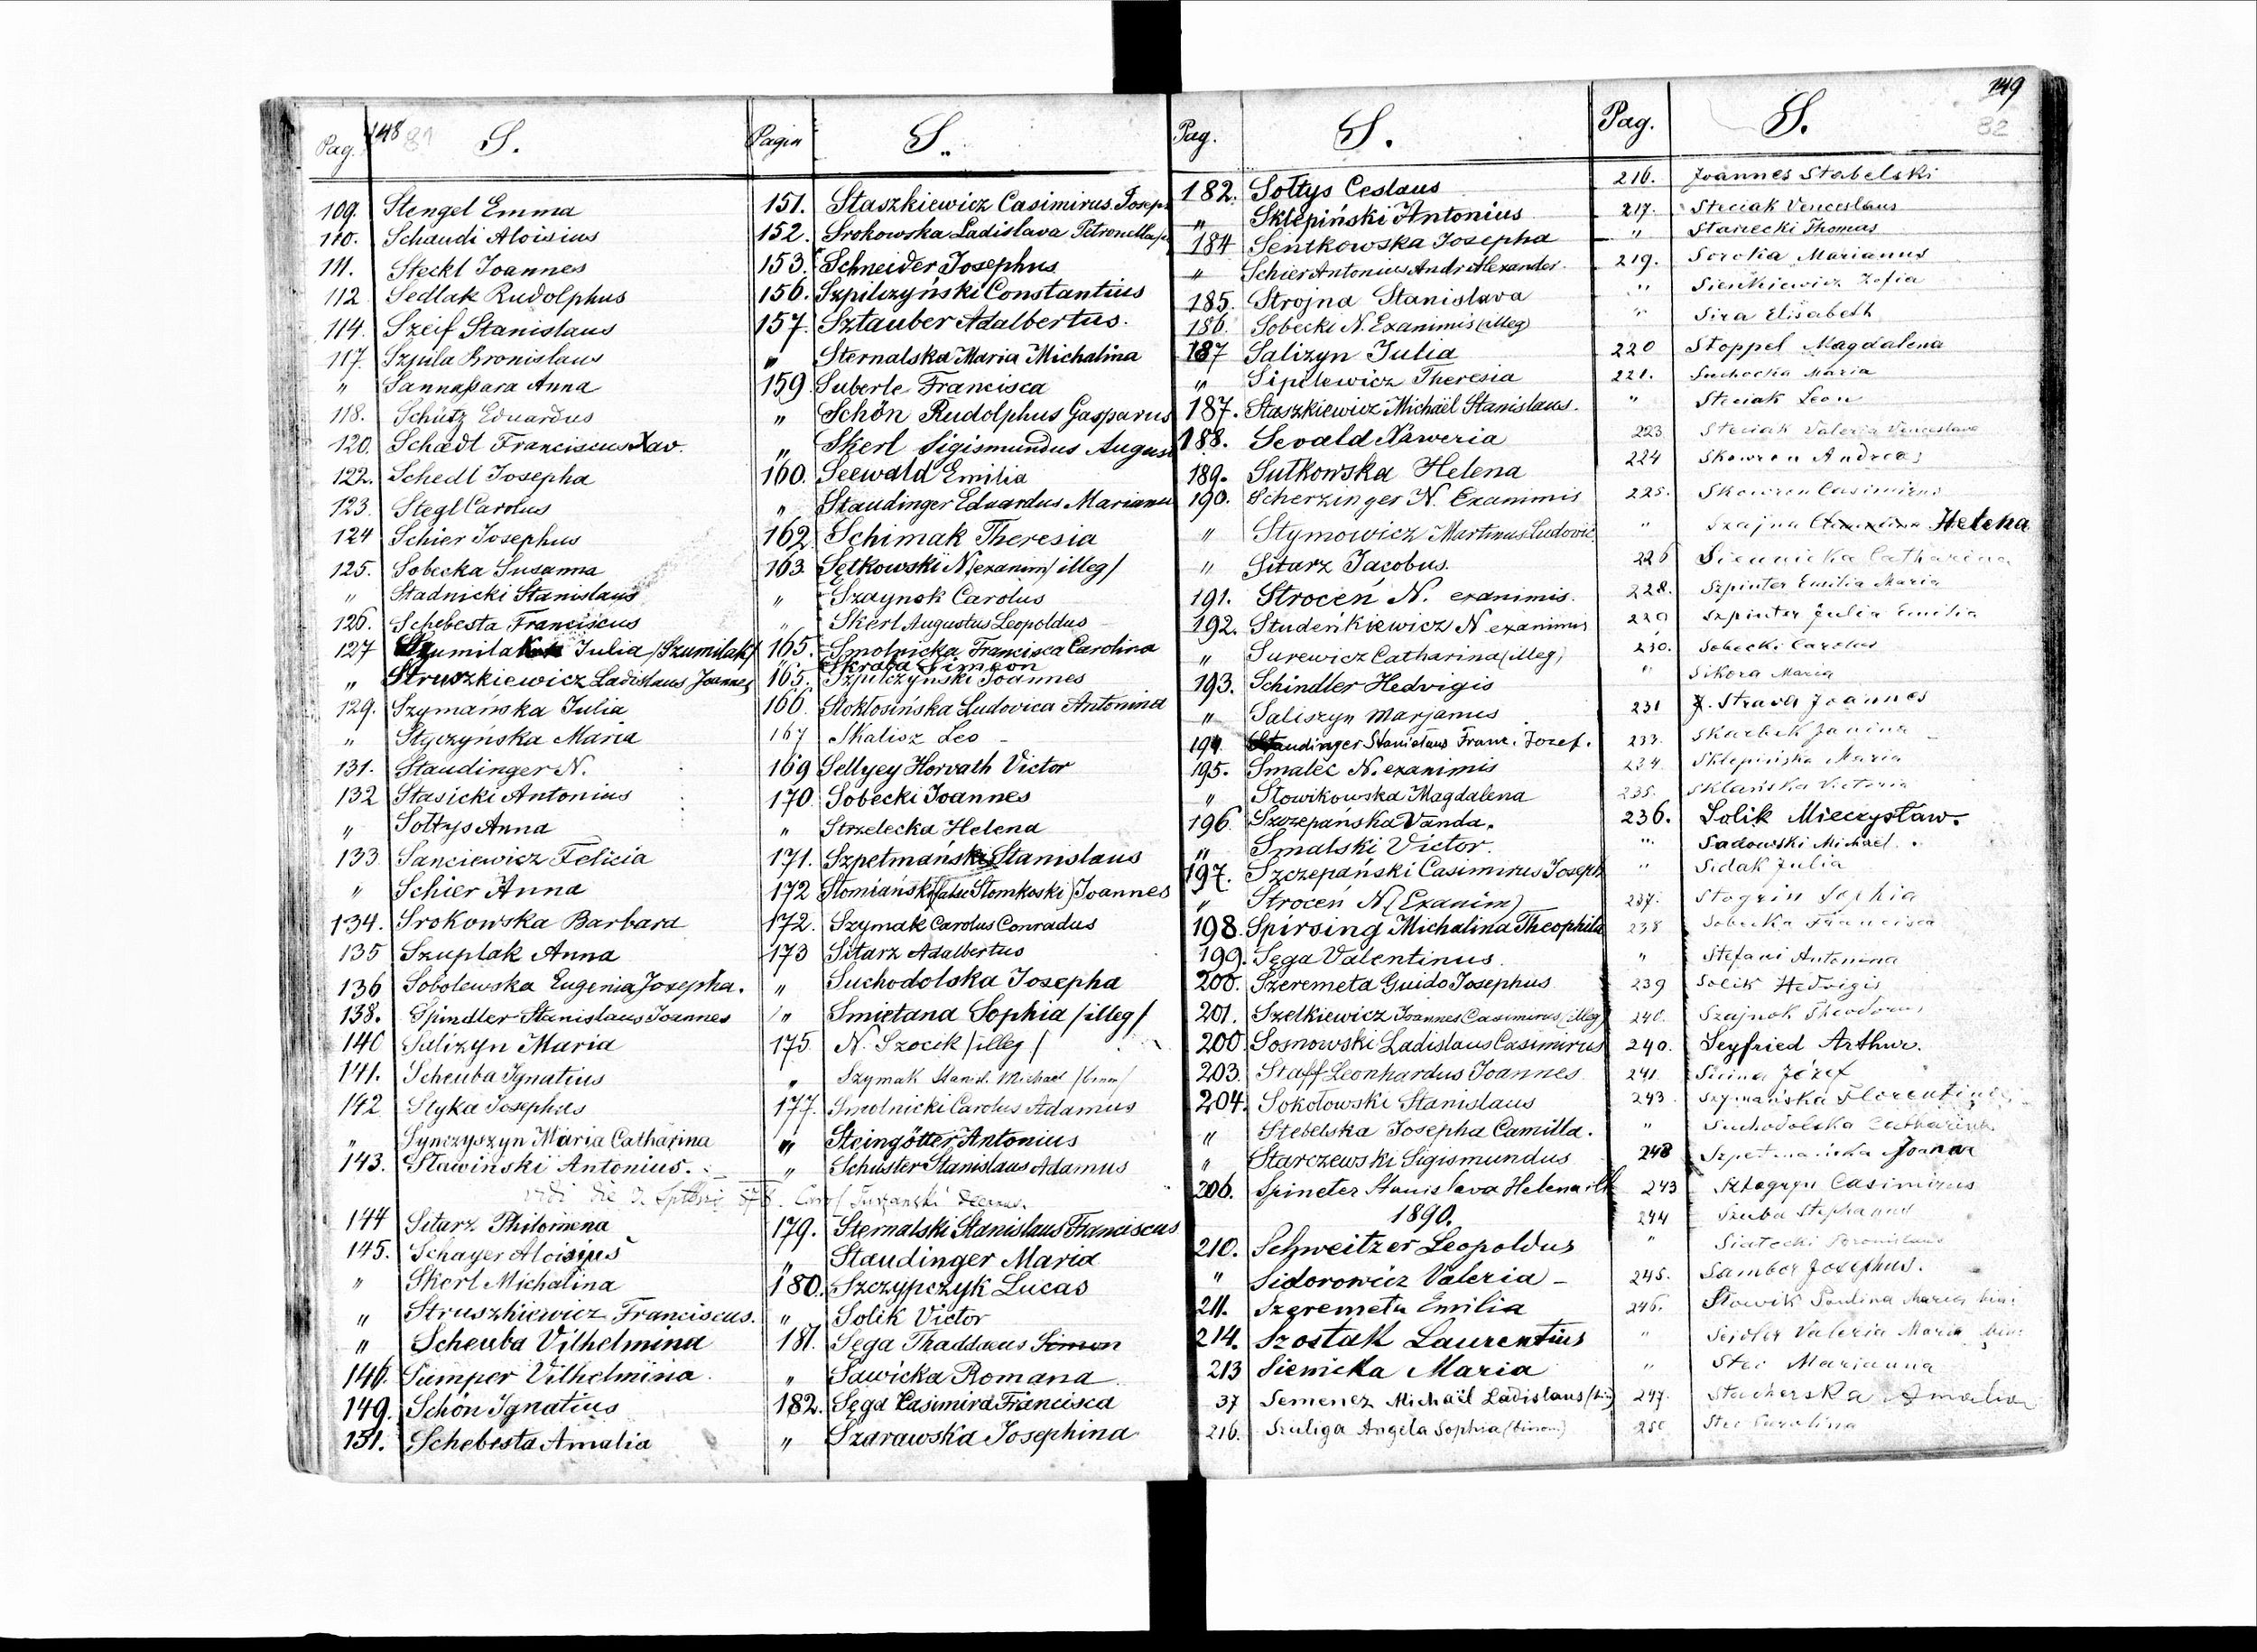 148 81
Pag. S.
109. Stengel Emma
110. Schaudi Aloisius
111. Steckl Joannes
112 Sedlak Rudolphus
114. Szeif Stanislaus
117. Szpila Bronislaus
" Sannassara Anna
118. Schütz Eduardus
120. Schædl Franciscus Xav.
122. Schedl Josepha
123. Stegl Carolus
124 Schier Josephus
125. Sobecka Susanna
" Stadnicki Stanislaus
126. Schebesta Franciscus
127 Julia /Szumilak/
" Struszkiewicz Ladislaus Joannes
129. Szymańska Julia
" Styczyńska Maria
131. Staudinger N.
132 Stasicki Antonius
" Sołtys Anna
133 Sanciewicz Felicia
" Schier Anna
134. Srokowska Barbara
135 Szuplak Anna
136 Sobolewska Eugenia Josepha.
138. Spindler Stanislaus Joannes
140 Salizyn Maria
141. Scheuba Ignatius
142 Styka Josephus
" Synczyszyn Maria Catharina
143. Sławinski Antonius.
144 Sitarz Philomena
145. Schayer Aloisius
" Skerl Michalina
" Struszkiewicz Franciscus.
" Scheuba Vilhelmina
146. Sumper Vilhelmina
149. Schön Ignatius
151. Schebesta Amalia
Pagin S.
151. Staszkiewicz Casimirus Joseph
152. Srokowska Ladislava Petronella
153. Schneider Josephus
156. Szpilczyński Constantius
157. Sztauber Adalbertus.
" Sternalska Maria Michalina
159 Suberle Francisca
" Schön Rudolphus Gasparus
" Skerl Sigismundus August
160. Seewald Emilia
" Staudinger Eduardus Marianus
162 Schimak Theresia
163 Sętkowski N/exanim/illeg/
" Szaynok Carolus
" Skerl Augustus Leopoldus
165. Smolnicka Francisca Carolina
" Skraba Simeon
165. Szpilczyński Joannes
166 Stokłosińska Ludovica Antonina
167 Skalisz Leo
169 Sellyey Horvath Victor
170 Sobecki Joannes
" Strzelecka Helena
171. Szpetmański Stanislaus
172 Słomiański /Joannes
172. Szymak Carolus Conradus
173 Sitarz Adalbertus
" Suchodolska Josepha
" Smietana Sophia /illeg/
175. N. Szocik /illeg/
" Szymak Stanisl. Michael
177. Smolnicki Carolus Adamus
" Steingötter Antonius
" Schuster Stanislaus Adamus
179. Sternalski Stanislaus Franciscus
" Staudinger Maria
180. Szczypczyk Lucas
" Solik Victor
181. Sęga Thaddaeus Simon
" Sawicka Romana
182. Sęga Casimira Francisca
" Szarawska Josephina
Pag. S.
182. Sołtys Ceslaus
" Sklepiński Antonius
184 Sentkowska Josepha
" Schier Antonius Andr Alexander.
185. Strojna Stanislava
186. Sobecki N. Exanimis (illeg)
187 Salizyn Julia
" Sipelewicz Theresia
187. Staszkiewicz Michaël Stanislaus.
188. Sevald Xaweria
189. Sutkowska Helena
190. Scherzinger N. Exanimis
" Stymowicz Martinus Ludovic.
" Sitarz Jacobus.
191. Strocen N. exanimis.
192. Studeńkiewicz N exanimis
" Surewicz Catharina (illeg)
193. Schindler Hedvigis
" Saliszyn Marjanus
194. Staudinger Stanislaus Franc. Jozef.
195. Smalec N. exanimis
" Słowikowska Magdalena
196 Szczepańska Vanda.
" Smalski Victor.
197. Szczepański Casimirus Joseph
" Strocen N (Exanim)
198. Spirsing Michalina Theophila
199. Sęga Valentinus.
200. Szeremeta Guido Josephus
201. Szelkiewicz Joannes Casimirus (illeg)
200. Sosnowski Ladislaus Casimirus
203. Staff Leonhardus Joannes
204. Sokołowski Stanislaus
" Stebelska Josepha Camilla.
" Starczewski Sigismundus
206. Spineter Stanislava Helena
1890.
210. Schweitzer Leopoldus
" Sidorowicz Valeria
211. Szeremeta Emilia
214. Szostak Laurentius
213 Sienicka Maria
37 Semenez Michaël Ladislaus (bin)
216. Szuliga Angela Sophia (binom)
149
82
Pag. S.
216. Joannes Stabelski
217. Steciak Venceslaus
" Starzecki Thomas
219. Soroka Marianus
" Sienkiewicz Zofia
" Sira Elisabeth
220 Stoppel Magdalena
221. Suchocka Maria
" Steciak Leon
223 Steciak Valeria
224 Skowron Andreas
225. Skowron Casimirus
" Szajna Helena
226 Siennicka Catharina
228. Szpinter Emilia Maria
229 Szpinter Julia Emilia
230. Sobecki Carolus
" Sikora Maria
231 Strawa Joannes
233. Skarbek Janina
234. Sklepińska Maria
235. Sklańska Victoria
236. Solik Mieczysław.
" Sadowski Michael.
" Sidak Julia
237. Stogrin Sophia
238 Sobecka Francisca
" Stefani Antonina
239 Solik Hedvigis
240. Szajnok Theodorus
240. Seyfried Arthur.
241. Józef
243 Szymańska Florentina
" Suchodolska Catharina
248 Joanna
243 Casimirus
244 Szuba Stephanus
" Siatecki Bronislaus
245. Sambor Josephus.
246. Słowik Paulina Maria bin:
" Seidler Valeria Maria bin:
" Stec Marianna
247. Stacherska Amalia
250 Stec Carolina